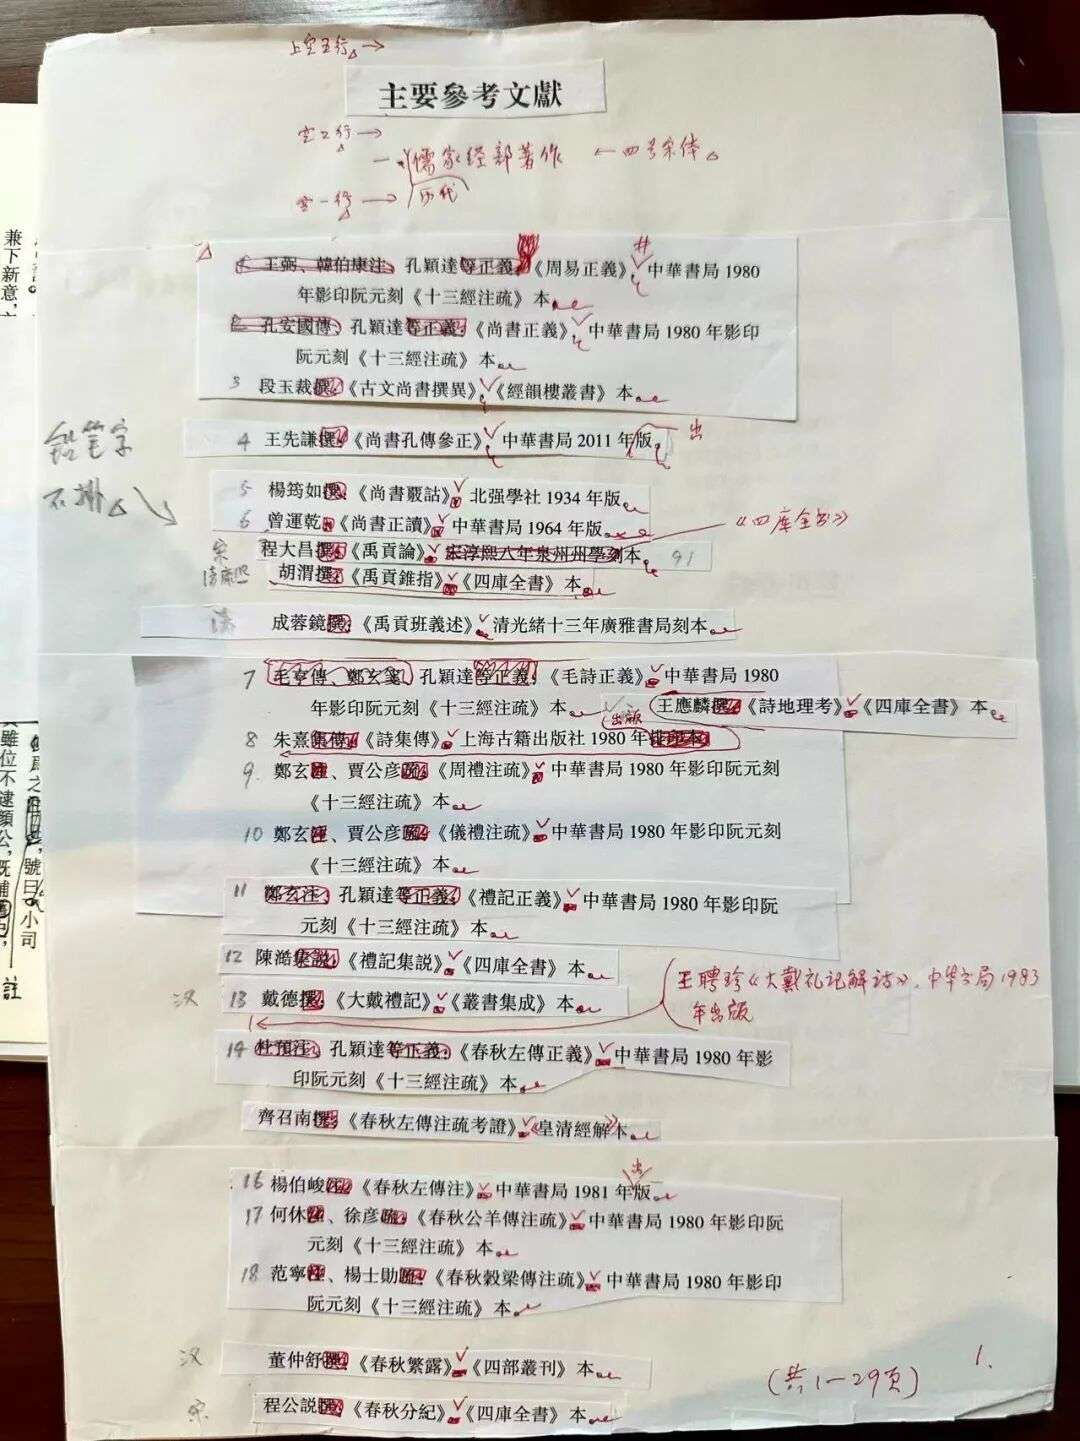 上空五行→
主要參考文獻
空二行→
一、儒家经部著作 ←四号宋体
历代
空一行→
王弼、韓伯康注，孔穎達等正義：《周易正義》，中華書局1980
年影印阮元刻《十三經注疏》本。
孔安國傳、孔穎達等正義：《尚書正義》，中華書局1980年影印
阮元刻《十三經注疏》本。
3 段玉裁撰：《古文尚書撰異》，《經韻樓叢書》本。
4 王先謙撰：《尚書孔傳參正》，中華書局2011年版。
出
铅笔字
不排
5 楊筠如撰：《尚書覈詁》，北强學社1934年版。
6 曾運乾：《尚書正讀》，中華書局1964年版。
《四库全书》
宋 程大昌撰：《禹貢論》，宋淳熙八年泉州州學刻本。 91
胡渭撰：《禹貢錐指》，《四庫全書》本。
清 成蓉鏡撰：《禹貢班義述》，清光緒十三年廣雅書局刻本。
7 毛亨傳、鄭玄箋，孔穎達等正義：《毛詩正義》，中華書局1980
年影印阮元刻《十三經注疏》本。
王應麟撰：《詩地理考》，《四庫全書》本。
出版
8 朱熹集傳：《詩集傳》，上海古籍出版社1980年排印本。
9. 鄭玄注、賈公彦疏：《周禮注疏》，中華書局1980年影印阮元刻
《十三經注疏》本。
10 鄭玄注、賈公彦疏：《儀禮注疏》，中華書局1980年影印阮元刻
《十三經注疏》本。
11 鄭玄注，孔穎達等正義：《禮記正義》，中華書局1980年影印阮
元刻《十三經注疏》本。
12 陳澔集説：《禮記集説》，《四庫全書》本。
王聘珍《大戴礼记解诂》，中华书局1983
年出版
汉 13 戴德撰：《大戴禮記》，《叢書集成》本。
14 杜預注，孔穎達等正義：《春秋左傳正義》，中華書局1980年影
印阮元刻《十三經注疏》本。
齊召南撰：《春秋左傳注疏考證》，《皇清經解》本。
出
16 楊伯峻注：《春秋左傳注》，中華書局1981年版。
17 何休注、徐彦疏：《春秋公羊傳注疏》，中華書局1980年影印阮
元刻《十三經注疏》本。
18 范寧注、楊士勛疏：《春秋穀梁傳注疏》，中華書局1980年影印
阮元刻《十三經注疏》本。
汉 董仲舒撰：《春秋繁露》，《四部叢刊》本。
1.
(共1—29页)
宋 程公説撰：《春秋分紀》，《四庫全書》本。
兼下新意，
雖位不逮顏公，既
號曰小司
註